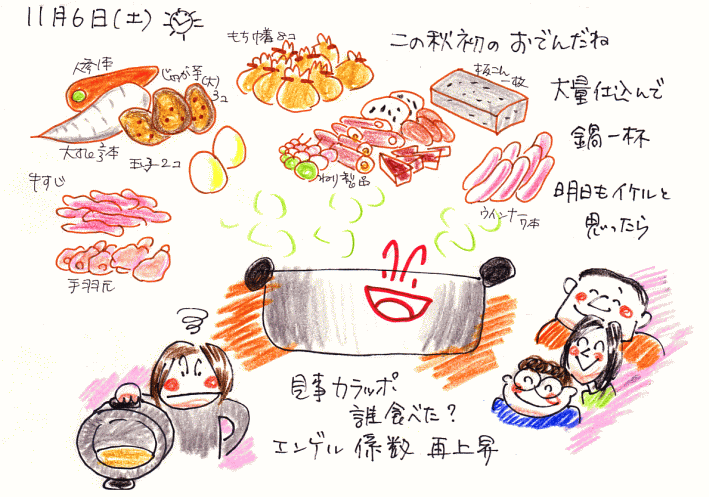 11月6日(土)
この秋初の おでんだね
大量仕込んで
鍋一杯
明日もイケルと
思ったら
もち巾着8コ
人参1本
じゃが芋(大)
3コ
大根 1/3本
玉子2コ
牛すじ
手羽元
ねり製品
板こん
一枚
ウインナー
7本
見事カラッポ
誰食べた?
エンゲル係数 再上昇